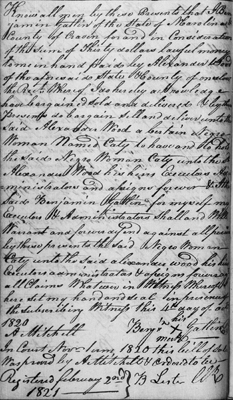 Know all men by these Presents that I Ben
jamin of the State of No Carolina
& County of Craven for and in Consideration
of the Sum of Thirty dollars lawful money
to me in hand paid by Alexander Wood
of the aforesaid State & County of
the Receipt Whereof I do hereby acknowledge
have bargained Sold and delivered & by these
Presents do bargain Sell and deliver unto the
Said Alexander Wood a certain Negro
Woman Named Caty to have and to hold
the Said Negro Woman Caty unto the S
Alexander Wood his heirs Executors Ad
ministrators and assigns forever & I the
Said Benjamin for myself my
Executors & Administrators Shall and Will
Warrant and forever defend against all persons
by these presents the Said Negro Woman
Caty unto the Said alexander wood his heirs
Executors administrators & assigns forever against
all Claims Whatever in Witness Whereof I have
here set my hand and seal in presence of
the Subscribing Witness this day of
1820
A Mitchell Benj X his mark
In Court Nov. Term 1820 this bill of Sale
Was proved by A Mitchell & Ordered to be
Registered february 2nd
1821